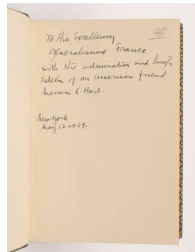 To His Excellency
Generalissimo Franco
with the admiration and high
esteem of an American friend
Merwin K Hart
New York
May 12 1939.